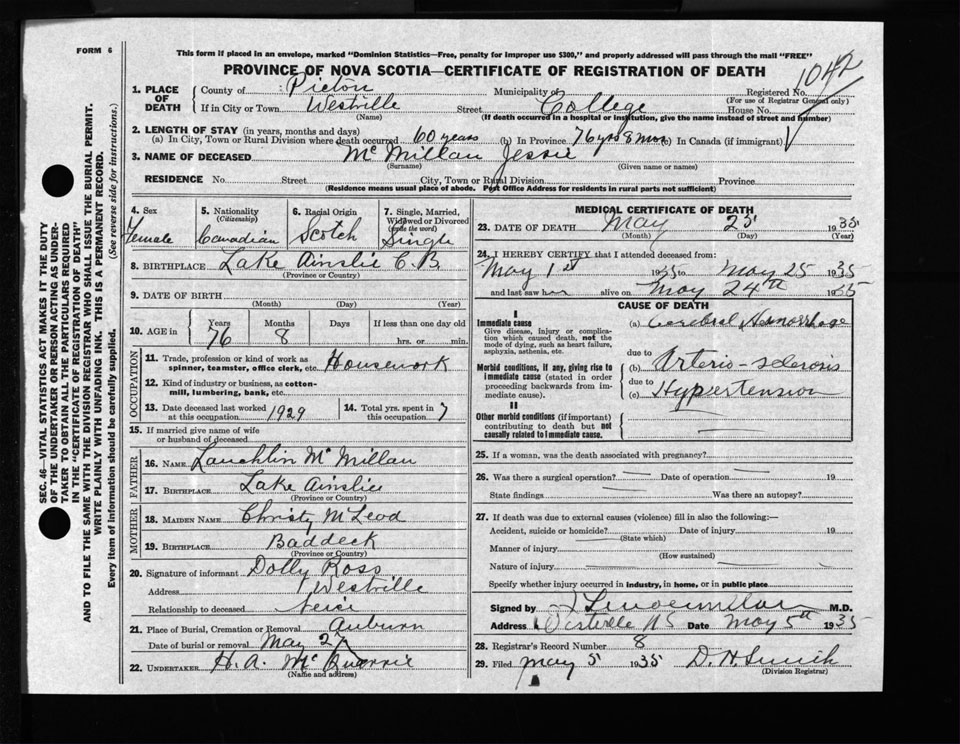 FORM 6
This form if placed in an envelope, marked "Dominion Statistics—Free, penalty for improper use $300," and properly addressed will pass through the mail "FREE"
PROVINCE OF NOVA SCOTIA—CERTIFICATE OF REGISTRATION OF DEATH
1042
1. PLACE OF DEATH
County of Pictou Municipality of Registered No.
(For use of Registrar General only)
If in City or Town Westville Street College House No.
(Name) (If death occurred in a hospital or institution, give the name instead of street and number)
2. LENGTH OF STAY (in years, months and days)
(a) In City, Town or Rural Division where death occurred 60 years (b) In Province 76 yrs 8 mos (c) In Canada (if immigrant)
3. NAME OF DECEASED McMillan Jessie
(Surname) (Given name or names)
RESIDENCE No. Street City, Town or Rural Division Province
(Residence means usual place of abode. Post Office Address for residents in rural parts not sufficient)
4. Sex Female
5. Nationality (Citizenship) Canadian
6. Racial Origin Scotch
7. Single, Married, Widowed or Divorced (write the word) Single
8. BIRTHPLACE Lake Ainslie C.B.
(Province or Country)
9. DATE OF BIRTH
(Month) (Day) (Year)
10. AGE in Years Months Days If less than one day old
76 8 hrs. or min.
OCCUPATION
11. Trade, profession or kind of work as spinner, teamster, office clerk, etc. Housework
12. Kind of industry or business, as cotton-mill, lumbering, bank, etc.
13. Date deceased last worked at this occupation 1929
14. Total yrs. spent in this occupation 7
15. If married give name of wife or husband of deceased
FATHER
16. NAME Lauchlin McMillan
17. BIRTHPLACE Lake Ainslie
(Province or Country)
MOTHER
18. MAIDEN NAME Christy McLeod
19. BIRTHPLACE Baddeck
(Province or Country)
20. Signature of informant Dolly Ross
Address Westville
Relationship to deceased Neice
21. Place of Burial, Cremation or Removal Auburn
Date of burial or removal May 27
22. UNDERTAKER H.A. McQuarrie
(Name and address)
MEDICAL CERTIFICATE OF DEATH
23. DATE OF DEATH May 25 1935
(Month) (Day) (Year)
24. I HEREBY CERTIFY that I attended deceased from:
May 1st 1935 to May 25 1935
and last saw her alive on May 24th 1935
CAUSE OF DEATH
I
Immediate cause
Give disease, injury or complication which caused death, not the mode of dying, such as heart failure, asphyxia, asthenia, etc.
(a) Cerebral Hemorrhage
due to
Morbid conditions, if any, giving rise to immediate cause (stated in order proceeding backwards from immediate cause).
(b) Arterio-sclerosis
due to
(c) Hypertension
II
Other morbid conditions (if important) contributing to death but not causally related to immediate cause.
25. If a woman, was the death associated with pregnancy?
26. Was there a surgical operation? Date of operation 19
State findings Was there an autopsy?
27. If death was due to external causes (violence) fill in also the following:—
Accident, suicide or homicide? Date of injury 19
(State which)
Manner of injury
(How sustained)
Nature of injury
Specify whether injury occurred in industry, in home, or in public place
Signed by M.D.
Address Westville NS Date May 5th 1935
28. Registrar's Record Number 8
29. Filed May 5 1935 D. H.
(Division Registrar)
SEC. 46—VITAL STATISTICS ACT MAKES IT THE DUTY
OF THE UNDERTAKER OR PERSON ACTING AS UNDERTAKER
TO OBTAIN ALL THE PARTICULARS REQUIRED
IN THE "CERTIFICATE OF REGISTRATION OF DEATH"
AND TO FILE THE SAME WITH THE DIVISION REGISTRAR WHO SHALL ISSUE THE BURIAL PERMIT.
WRITE PLAINLY WITH UNFADING INK. THIS IS A PERMANENT RECORD.
Every item of information should be carefully supplied. (See reverse side for instructions.)